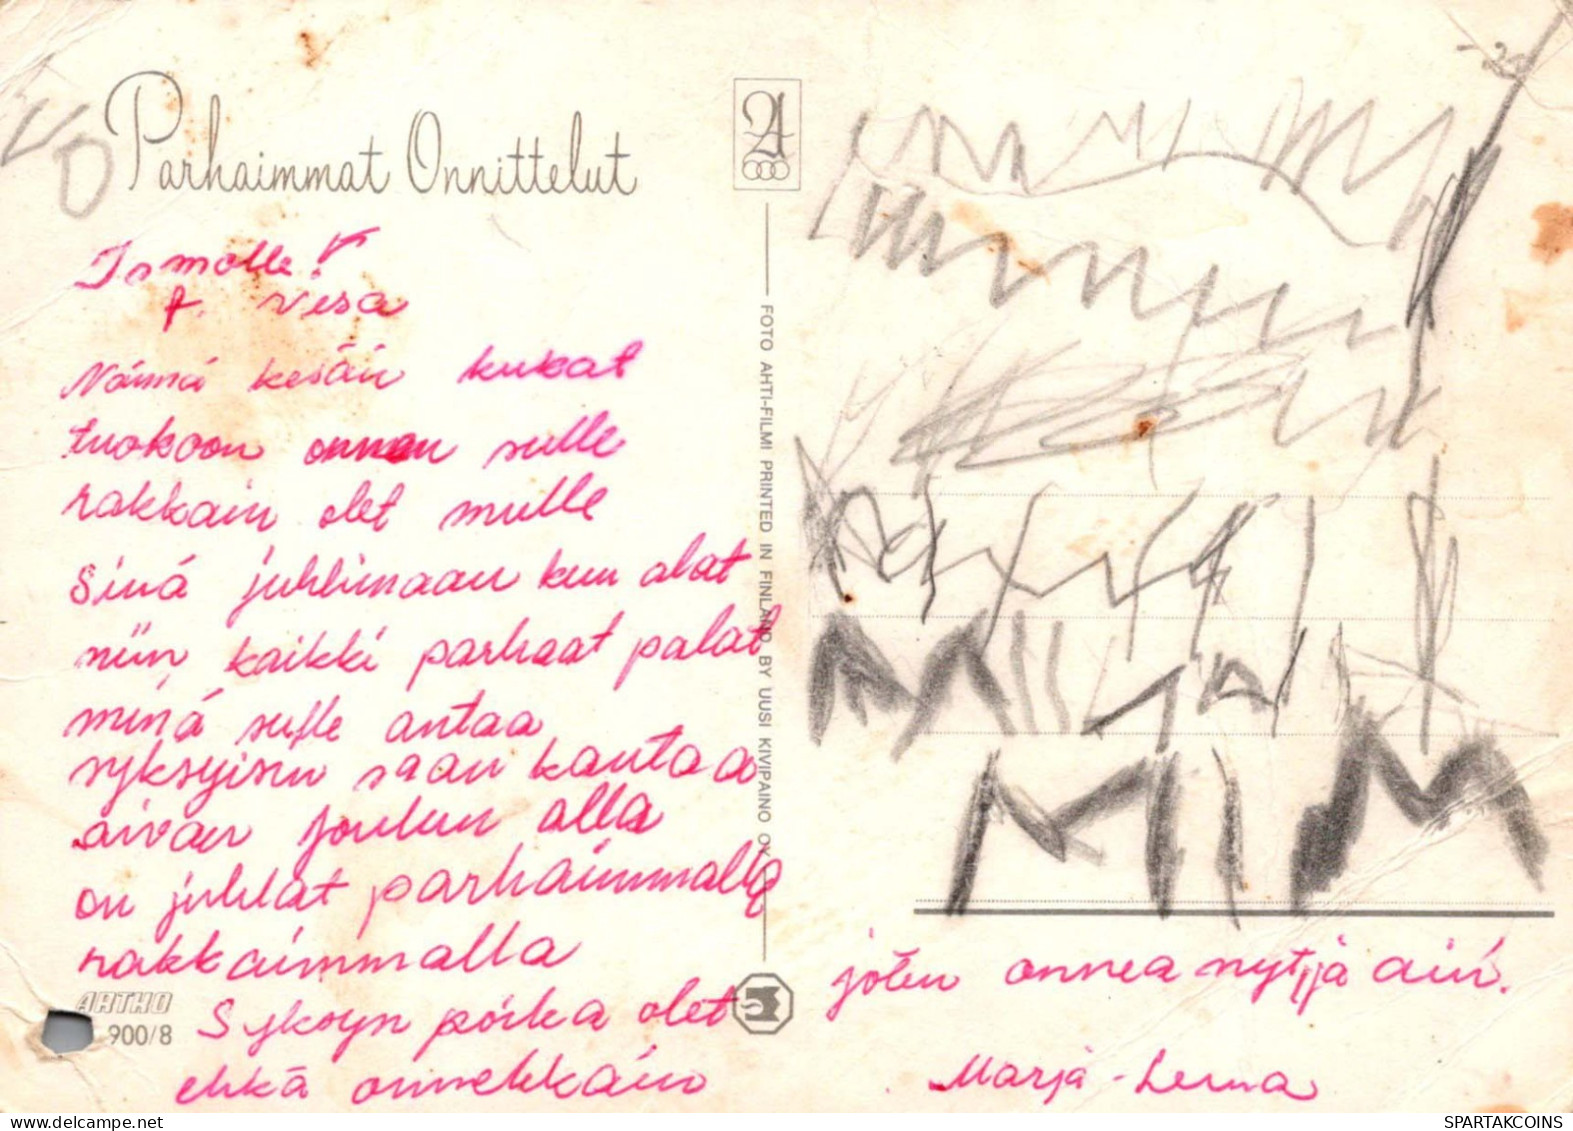 Parhaimmat Onnittelut
Ismolle!
t. Vesa
Nämä kesän kukat
tuokoon onnen sulle
rakkain olet mulle
Sinä juhlimaan kun alat
niin kaikki parhaat palat
minä sulle antaa
syksyisin saan kantaa
aivan joulun alla
on juhlat parhaimmalla
rakkaimmalla
Syksyn poika olet
ehkä onnekkain
joten onnea nyt ja ain.
Marja-Leena
ARTKO
900/8
FOTO AHTI-FILMI PRINTED IN FINLAND BY UUSI KIVIPAINO OY
SPARTAKCOINS